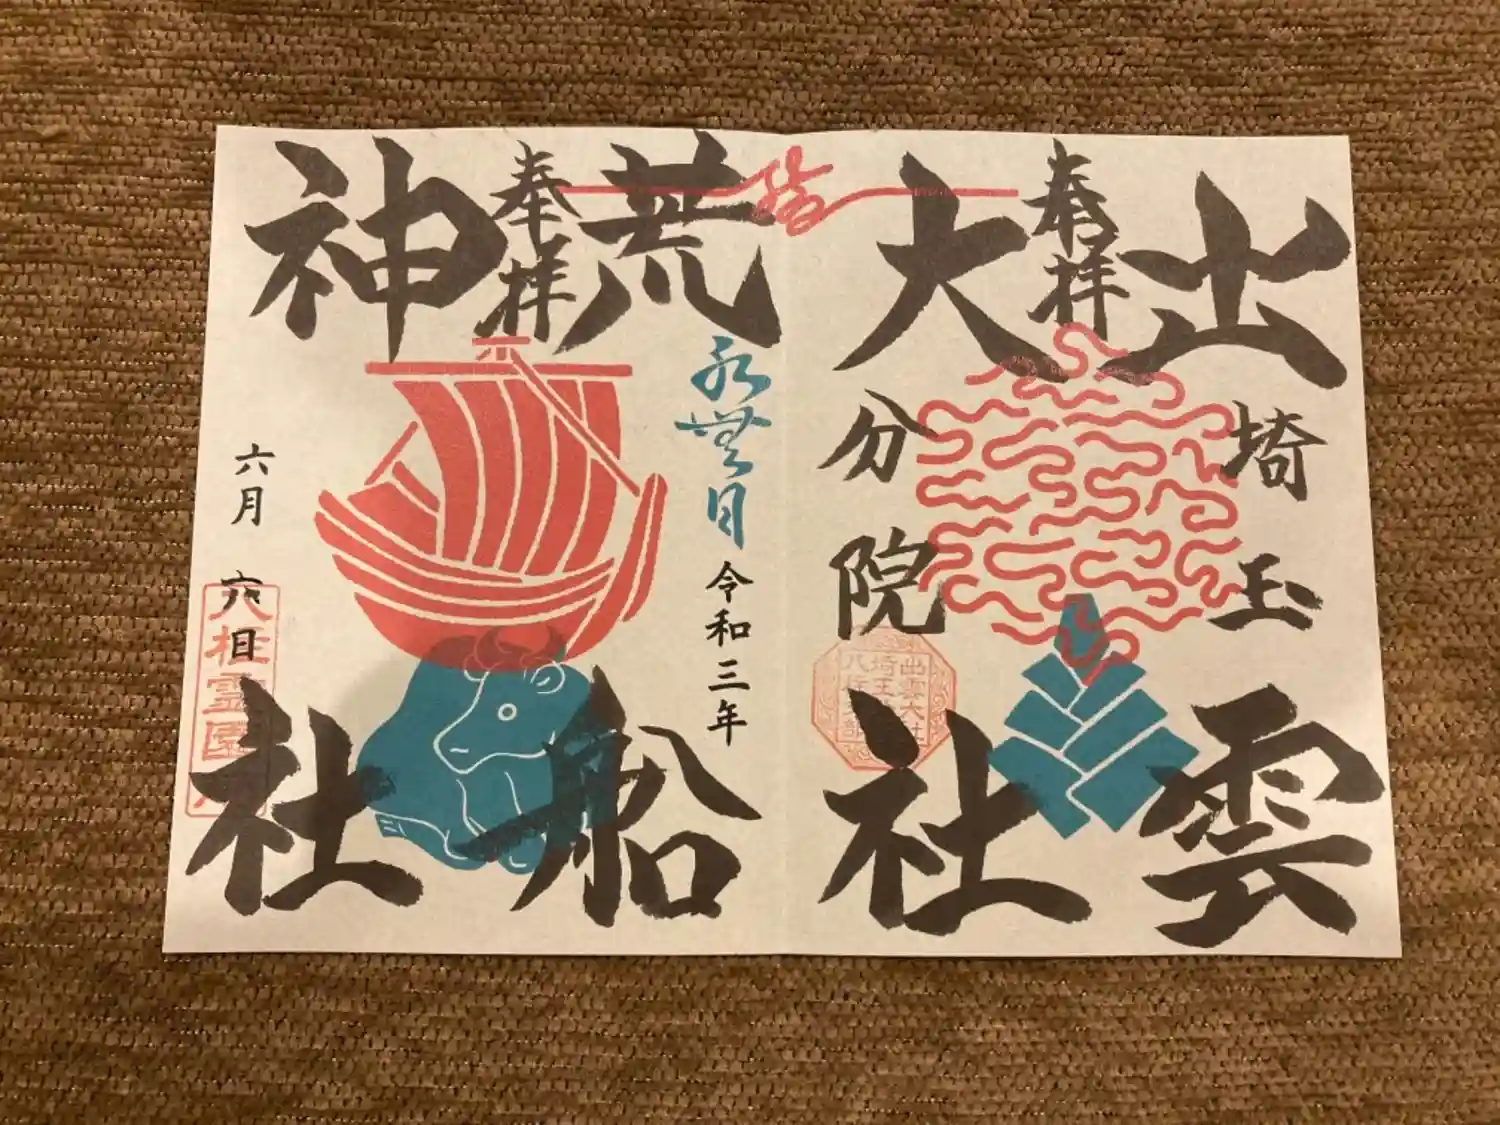 出雲
奉拝
大社
埼玉
分院
出雲大社
埼玉
八
荒船
奉拝
神社
水無月
令和三年
六月
六日
八柱霊園